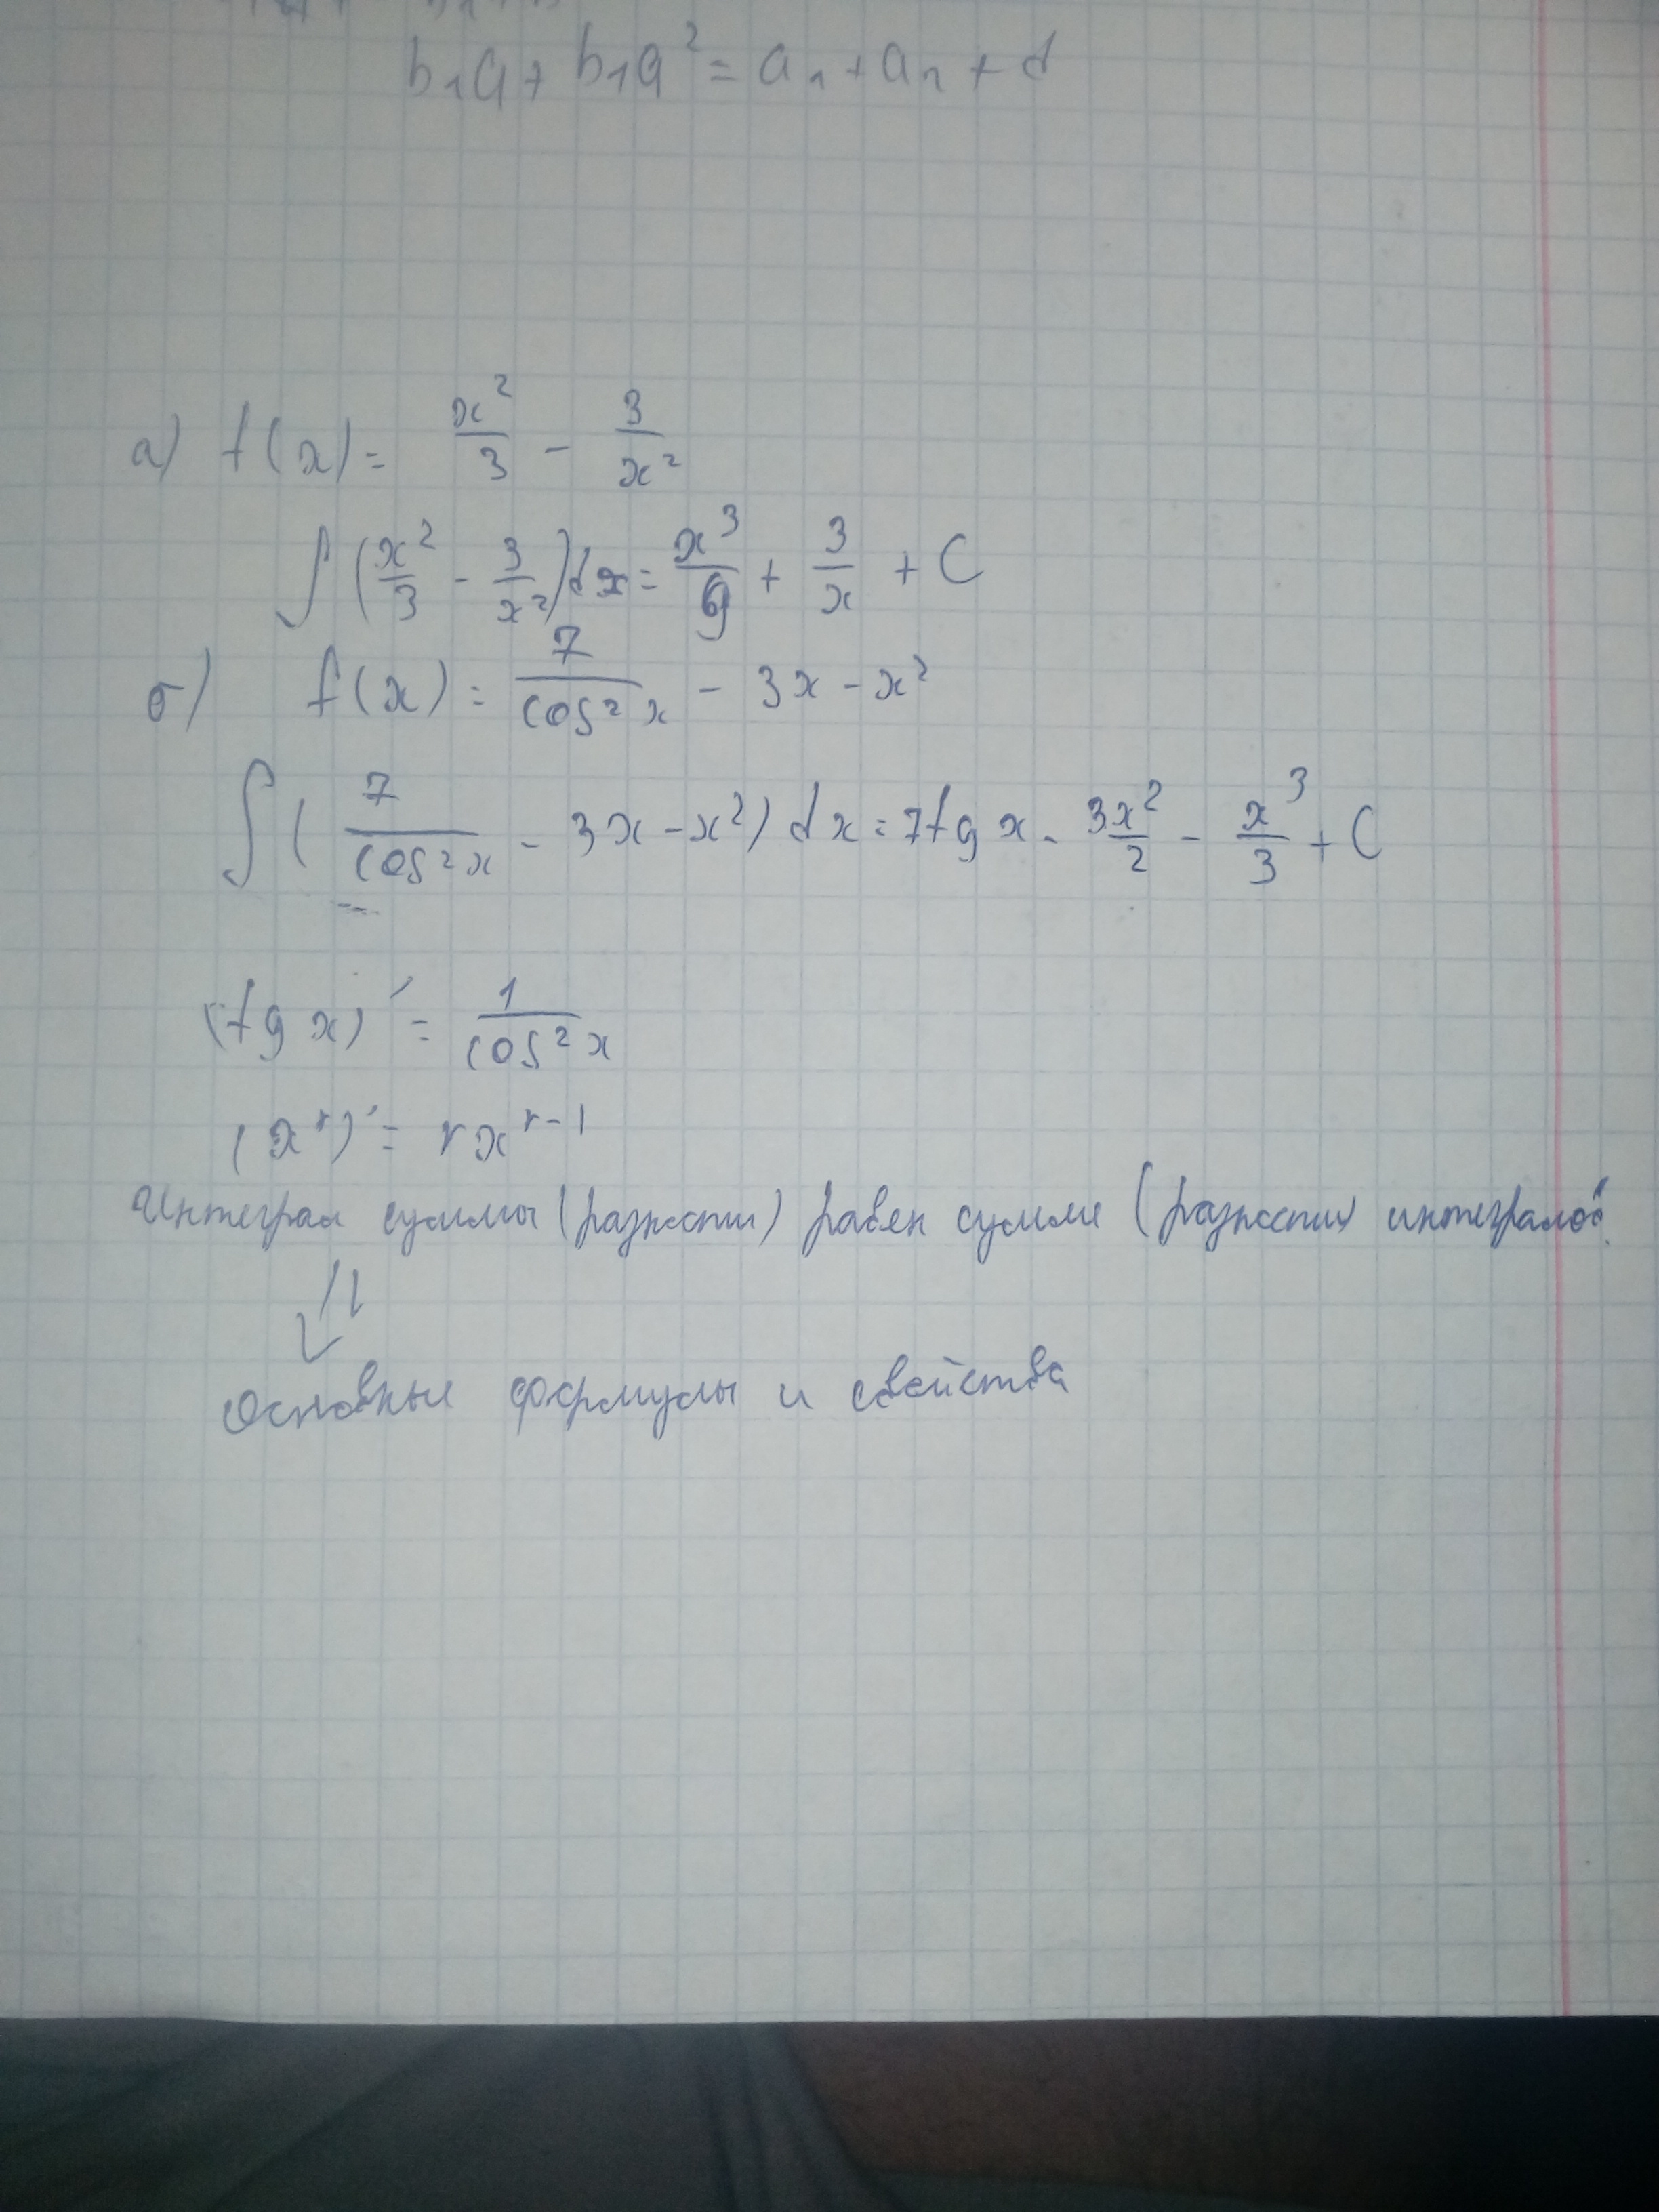 b₁q + b₁q² = a₁ + a₁ + d
а) f(x) = x²/3 - 3/x²
∫(x²/3 - 3/x²)dx = x³/9 + 3/x + C
б) f(x) = 7/cos²x - 3x - x²
∫(7/cos²x - 3x - x²)dx = 7tgx - 3x²/2 - x³/3 + C
(tgx)' = 1/cos²x
(xʳ)' = rxʳ⁻¹
Интеграл суммы (разности) равен сумме (разности) интегралов.
основные формулы и свойства